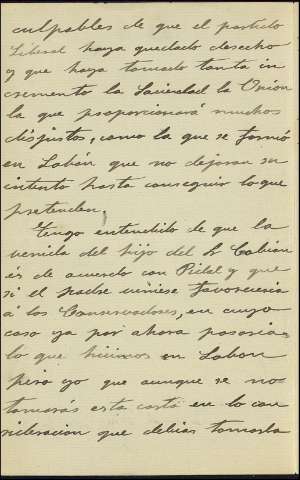 culpables de que el partido
Liberal haya quedado desecho
y que haya tomado tanta in
cremento la Sociedad la Unión
la que proporcionará muchos
disjustos, como la que se formó
en Labán que no dejoran su
intento hasta conseguir lo que
pretenden,
Tengo entendido de que la
venida del hijo del Sr Cabian
és de acuerdo con Pidal y que
si el padre viniese favoreceria
á los Conservadores, en cuyo
caso ya por ahora pasoria
lo que hicimos en Laban
pero yo que aunque se no
tomarás esta carta en lo con
sideracion que debias tomarla